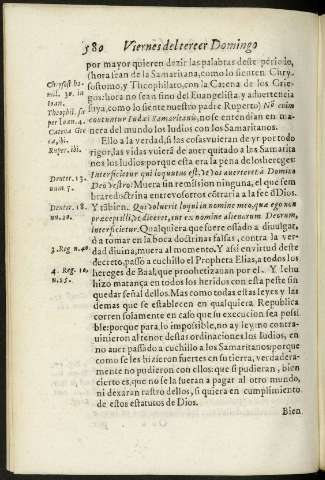 580 Viernes del tercer Domingo
por mayor quieren dezir las palabras deste periodo,
(hora sean de la Samaritana, como lo sienten Chry-
sostomo, y Theophilato, con la Catena de los Grie-
gos: hora no sean sino del Euangelista, y aduertencia
suya, como lo siente nuestro padre Ruperto) Nõ enim
coutuntur Iudæi Samaritanis, no se entendian en ma
nera del mundo los Iudios con los Samaritanos.
Ello a la verdad, si las cosas vuieran de yr por todo
rigor, las vidas vuierã de auer quitado a las Samarita
nos los Iudios porque esta era la pena de los hereges:
Interficietur qui loquutus est, vt vos auerteret à Domino
Deo vestro: Muera sin remission ninguna, el que sem
brare dotrina entre vosotros cõtraria a la fee d̃ Dios.
Y tãbien. Qui voluerit loqui in nomine meo, quæ ego non
præcepi illi, vt diceret, aut ex nomine alienorum Deorum,
interficietur. Qualquiera que fuere osado a diuulgar,
o a tomar en la boca doctrinas falsas, contra la ver-
dad diuina, muera al momento. Y assi en virtud deste
decreto, passò a cuchillo el Propheta Elias, a todos los
hereges de Baal, que prophetizauan por el. Y Iehu
hizo matança en todos los heridos con esta peste sin
quedar señal dellos. Mas como todas estas leyes y las
demas que se establecen en qualquiera Republica
corren solamente en caso que su execucion sea possi
ble: porque para lo impossible, no ay ley, no contra-
uinieron al tenor destas ordinaciones los Iudios, en
no auer passado a cuchillo a los Samaritanos: porque
como se les hizieron fuertes en su tierra, verdadera-
mente no pudieron con ellos: que si pudieran, bien
cierto es, que no se la fueran a pagar al otro mundo,
ni dexaran rastro dellos, si quiera en cumplimiento
de estos estatutos de Dios.
Bien
Chrysost. ho
mil. 30. in
Ioan.
Theophil. su
per Ioan. 4.
Catena Græ
ca, ibi.
Ruper. ibi.
Deuter. 13.
num. 5.
Deuter. 18.
nu. 20.
3. Reg. n. 40
4. Reg. 10.
n. 25.